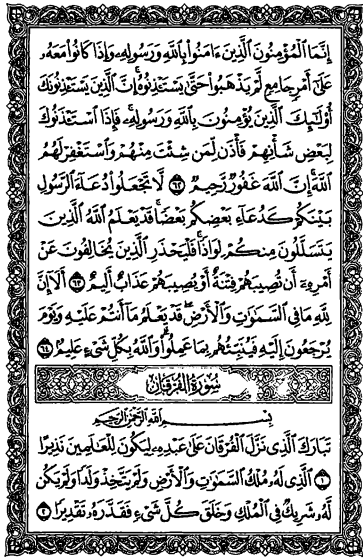 إِنَّمَا ٱلْمُؤْمِنُونَ ٱلَّذِينَ ءَامَنُوا۟ بِٱللَّهِ وَرَسُولِهِۦ وَإِذَا كَانُوا۟ مَعَهُۥ
عَلَىٰٓ أَمْرٍ جَامِعٍ لَّمْ يَذْهَبُوا۟ حَتَّىٰ يَسْتَـْٔذِنُوهُ إِنَّ ٱلَّذِينَ يَسْتَـْٔذِنُونَكَ
أُو۟لَـٰٓئِكَ ٱلَّذِينَ يُؤْمِنُونَ بِٱللَّهِ وَرَسُولِهِۦ فَإِذَا ٱسْتَـْٔذَنُوكَ
لِبَعْضِ شَأْنِهِمْ فَأْذَن لِّمَن شِئْتَ مِنْهُمْ وَٱسْتَغْفِرْ لَهُمُ
ٱللَّهَ إِنَّ ٱللَّهَ غَفُورٌ رَّحِيمٌ ٦٢ لَّا تَجْعَلُوا۟ دُعَآءَ ٱلرَّسُولِ
بَيْنَكُمْ كَدُعَآءِ بَعْضِكُم بَعْضًا قَدْ يَعْلَمُ ٱللَّهُ ٱلَّذِينَ
يَتَسَلَّلُونَ مِنكُمْ لِوَاذًا فَلْيَحْذَرِ ٱلَّذِينَ يُخَالِفُونَ عَنْ
أَمْرِهِۦٓ أَن تُصِيبَهُمْ فِتْنَةٌ أَوْ يُصِيبَهُمْ عَذَابٌ أَلِيمٌ ٦٣ أَلَآ إِنَّ
لِلَّهِ مَا فِى ٱلسَّمَـٰوَٰتِ وَٱلْأَرْضِ قَدْ يَعْلَمُ مَآ أَنتُمْ عَلَيْهِ وَيَوْمَ
يُرْجَعُونَ إِلَيْهِ فَيُنَبِّئُهُم بِمَا عَمِلُوا۟ وَٱللَّهُ بِكُلِّ شَىْءٍ عَلِيمٌۢ ٦٤
سُورَةُ الفُرْقَانِ
بِسْمِ ٱللَّهِ ٱلرَّحْمَـٰنِ ٱلرَّحِيمِ
تَبَارَكَ ٱلَّذِى نَزَّلَ ٱلْفُرْقَانَ عَلَىٰ عَبْدِهِۦ لِيَكُونَ لِلْعَـٰلَمِينَ نَذِيرًا
١ ٱلَّذِى لَهُۥ مُلْكُ ٱلسَّمَـٰوَٰتِ وَٱلْأَرْضِ وَلَمْ يَتَّخِذْ وَلَدًا وَلَمْ يَكُن
لَّهُۥ شَرِيكٌ فِى ٱلْمُلْكِ وَخَلَقَ كُلَّ شَىْءٍ فَقَدَّرَهُۥ تَقْدِيرًا ٢